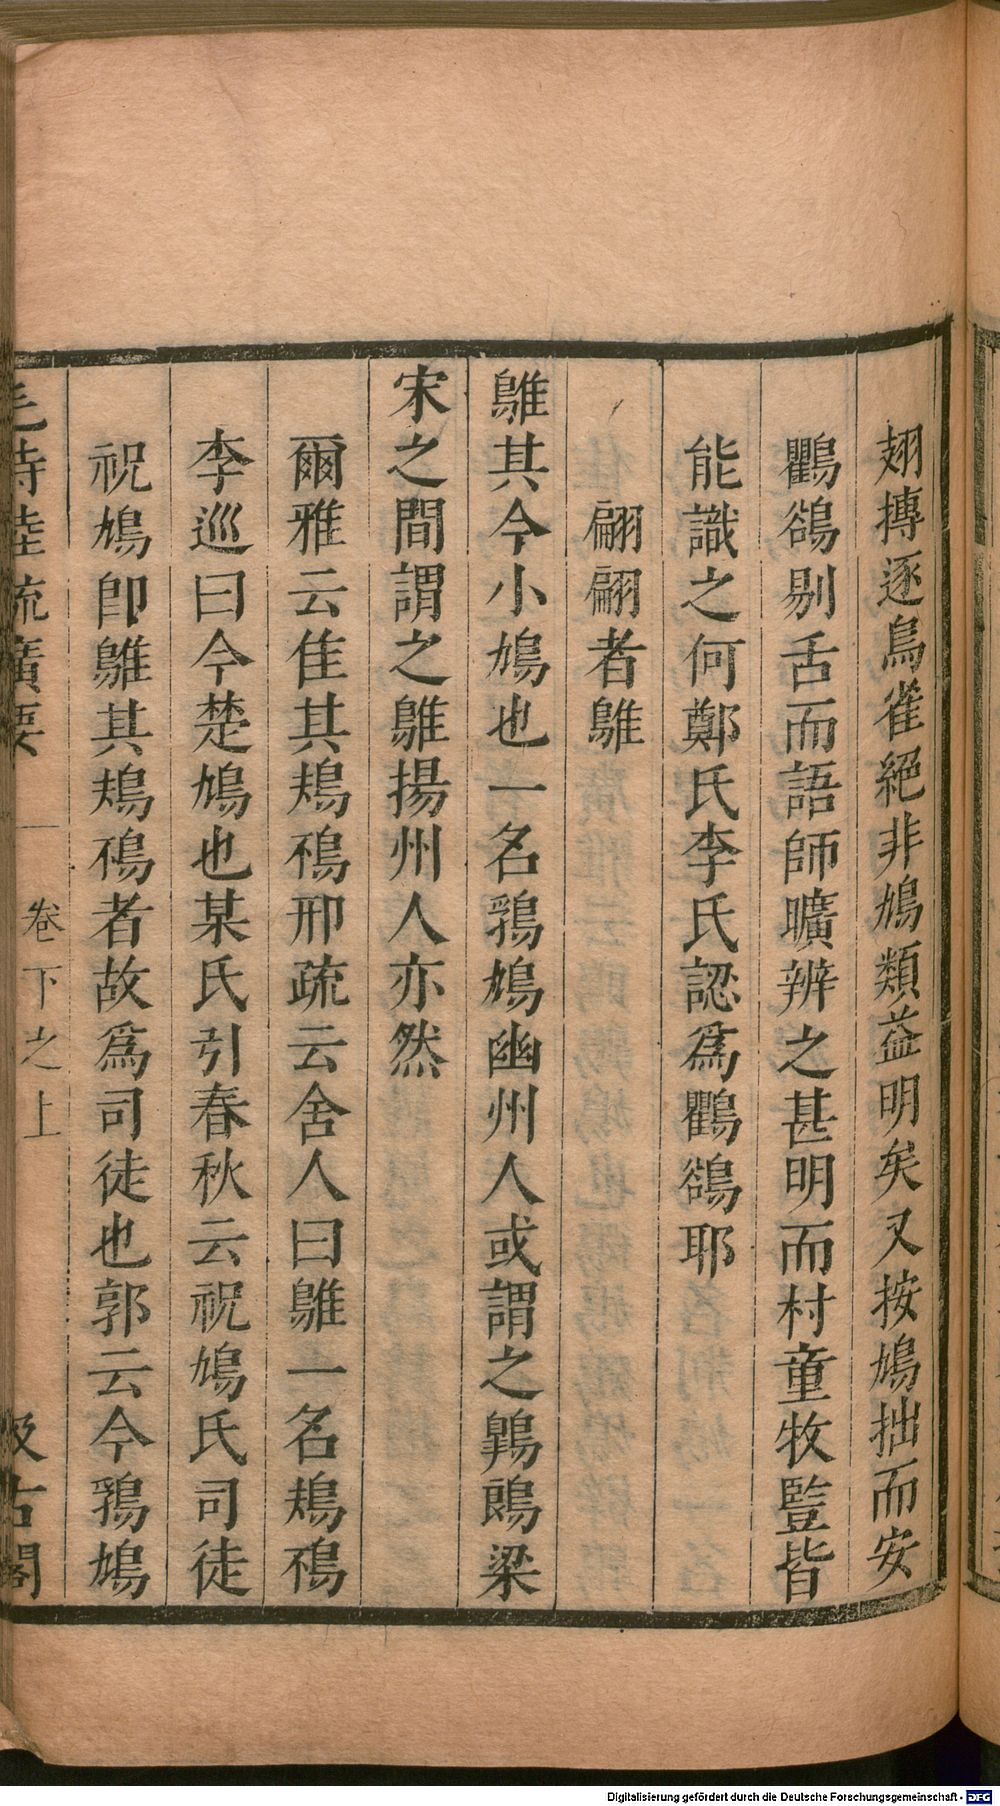 翅摶逐鳥雀絕非鳩類益明矣又按鳩拙而安
鸜鵒剔舌而語師曠辨之甚明而村童牧豎皆
能識之何鄭氏李氏認爲鸜鵒耶
翩翩者鵻
鵻其今小鳩也一名鶉鳩幽州人或謂之鷎鶥梁
宋之間謂之鵻揚州人亦然
爾雅云隹其鳺鴀邢疏云舍人曰鵻一名鳺鴀
李巡曰今楚鳩也某氏引春秋云祝鳩氏司徒
祝鳩卽鵻其鳺鴀者故爲司徒也郭云今鶉鳩
毛詩陸疏廣要 卷下之上 汲古閣
Digitalisierung gefördert durch die Deutsche Forschungsgemeinschaft - DFG